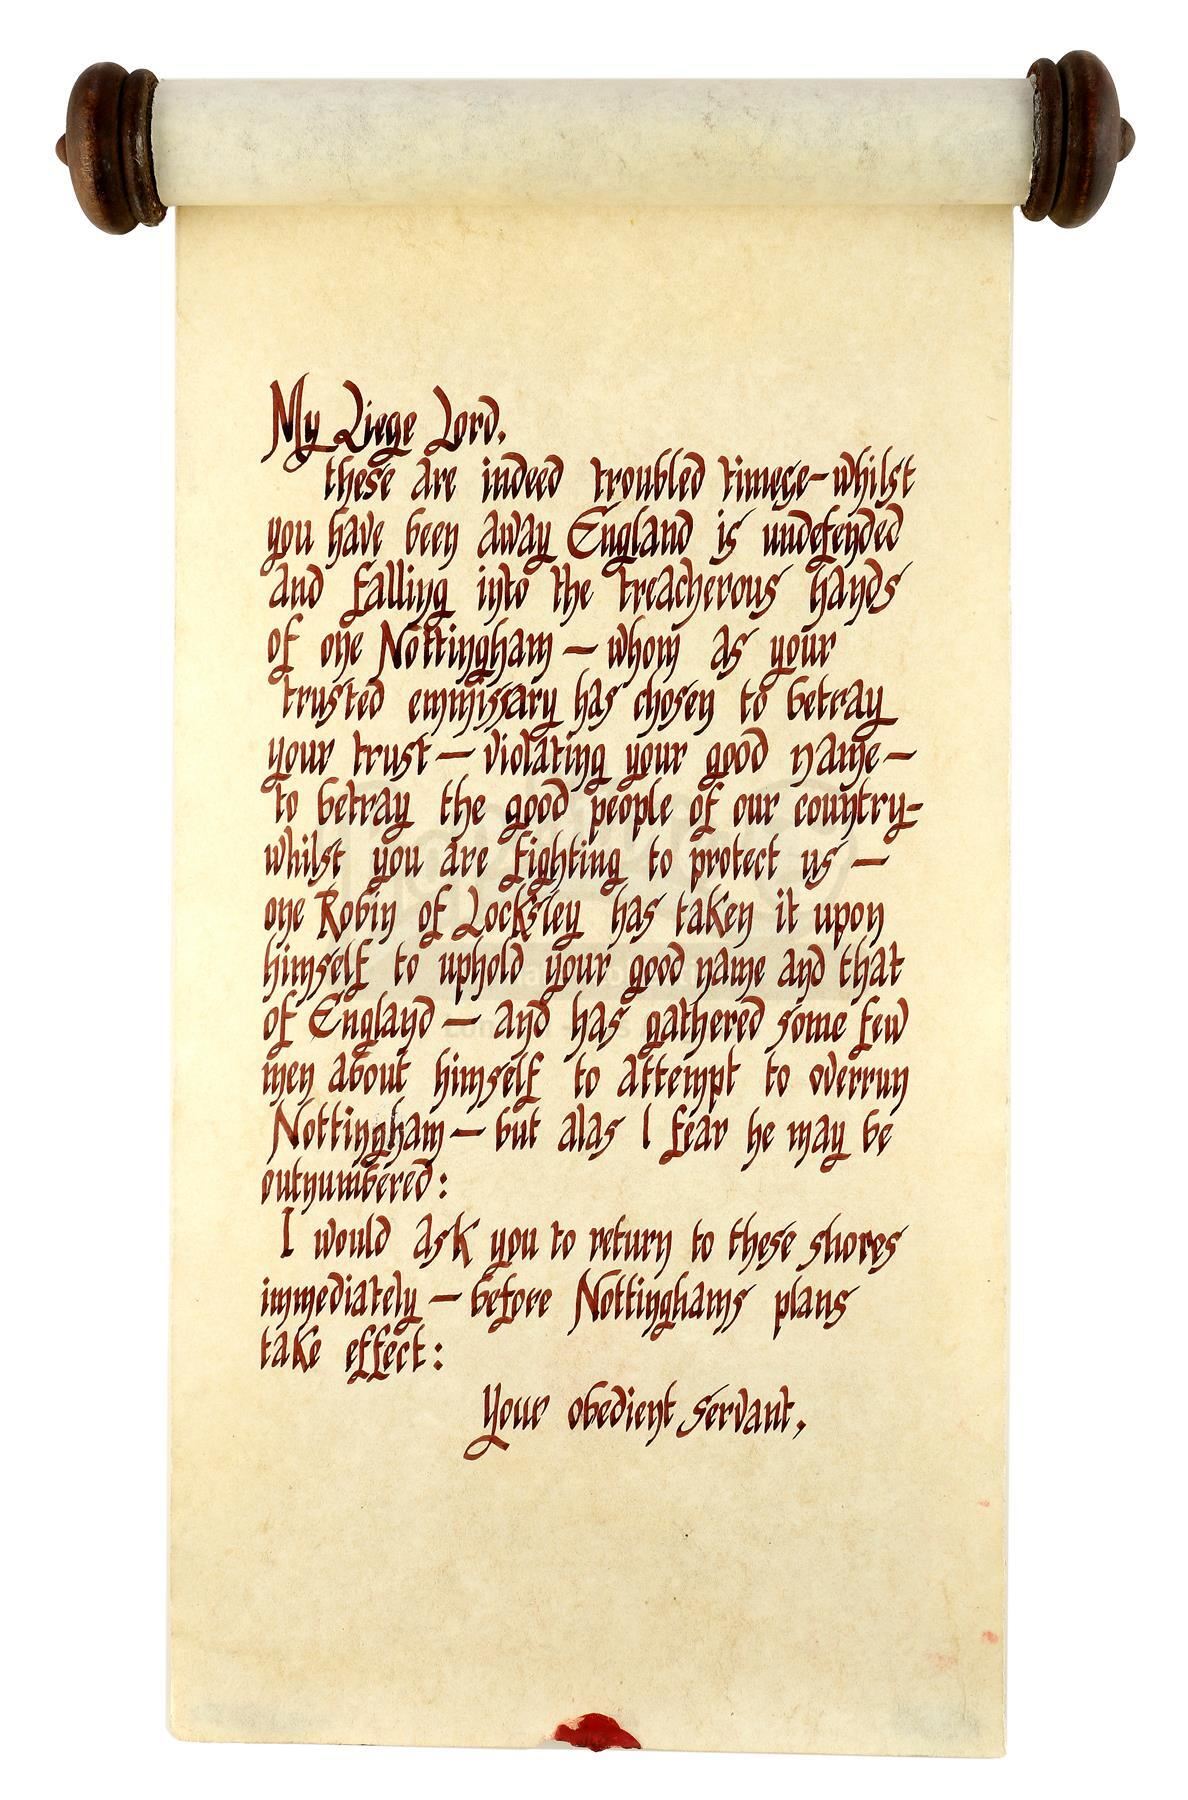 My Liege Lord.
these are indeed troubled timese-whilst
you have been away England is undefended
and falling into the treacherous hands
of one Nottingham — whom as your
trusted emmissary has chosen to betray
your trust — violating your good name —
to betray the good people of our country-
whilst you are fighting to protect us —
one Robin of Locksley has taken it upon
himself to uphold your good name and that
of England — and has gathered some few
men about himself to attempt to overrun
Nottingham — but alas I fear he may be
outnumbered:
I would ask you to return to these shores
immediately — before Nottinghams plans
take effect:
Your obedient servant,